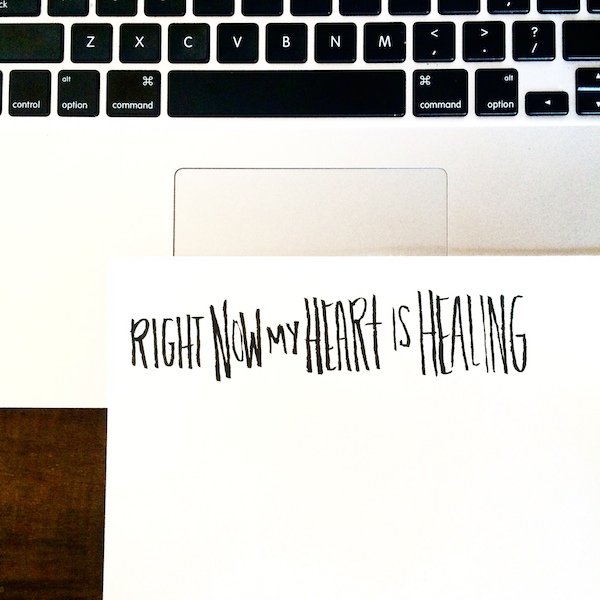 ck
Z X C V B N M < , > . ? /
alt alt
⌘ ⌘
control option command command option ◄ ▲ 
RIGHT NOW MY HEART IS HEALING